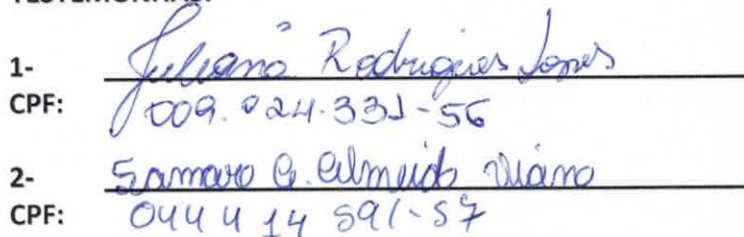 TESTEMUNHAS:
1- Juliana Rodrigues Lopes
CPF: 009.024.331-56
2- Samara G. Almeida Viana
CPF: 044 4 14 591-57